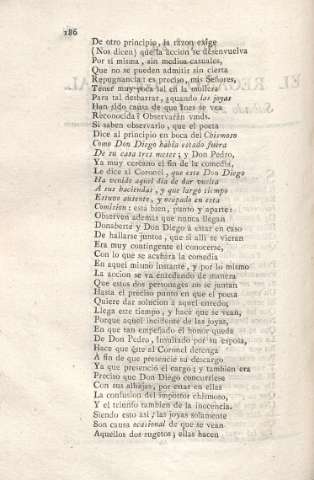 186
De otro principio, la razon exige
(Nos dicen) que la accion se desenvuelva
Por si misma, sin medios casuales,
Que no se pueden admitir sin cierta
Repugnancia: es preciso, mis Señores,
Tener muy poca sal en la mollera
Para tal desbarrar, ¿quando las joyas
Han sido causa de que Ines se vea
Reconocida? Observarán vmds.
Si saben observarlo, que el poeta
Dice al principio en boca del Chismoso
Como Don Diego habia estado fuera
De su casa tres meses; y Don Pedro,
Ya muy cercano el fin de la comedia,
Le dice al Coronel, que este Don Diego
Ha venido aquel dia de dar vuelta
A sus haciendas, y que largo tiempo
Estuvo ausente, y ocupado en esta
Comision: está bien, punto y aparte:
Observen además que nunca llegan
Donaberta y Don Diego á estar en caso
De hallarse juntos, que si alli se vieran
Era muy contingente el conocerse,
Con lo que se acabára la comedia
En aquel mismo instante, y por lo mismo
La accion se va enredando de manera
Que estos dos personages no se juntan
Hasta el preciso punto en que el poeta
Quiere dar solucion á aquel enredo;
Llega este tiempo, y hace que se vean,
Porque aquel incidente de las joyas,
En que tan empeñado el honor queda
De Don Pedro, insultado por su esposa,
Hace que éste al Coronel detenga
A fin de que presencie su descargo
Ya que presenció el cargo; y tambien era
Preciso que Don Diego concurriese
Con sus alhajas, por estar en ellas
La confusion del impostor chismoso,
Y el triunfo tambien de la inocencia.
Siendo esto asi, las joyas solamente
Son causa ocasional de que se vean
Aquellos dos sugetos; ellas hacen